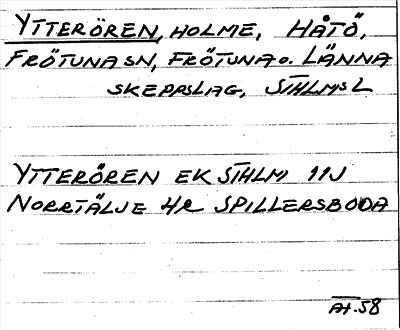 YTTERÖREN, HOLME, HÅTÖ,
FRÖTUNA SN, FRÖTUNA O. LÄNNA
SKEPPSLAG, STHLMS L
YTTERÖREN EK STHLM 11J
NORRTÄLJE 4R SPILLERSBODA
AH.58